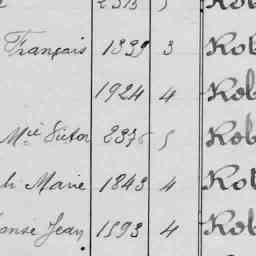 2313 5 Rob
Français 1839 3 Rob
1924 4 Rob
Mie Victor 2376 5 Rob
Marie 1843 4 Rob
Jean 1593 4 Rob